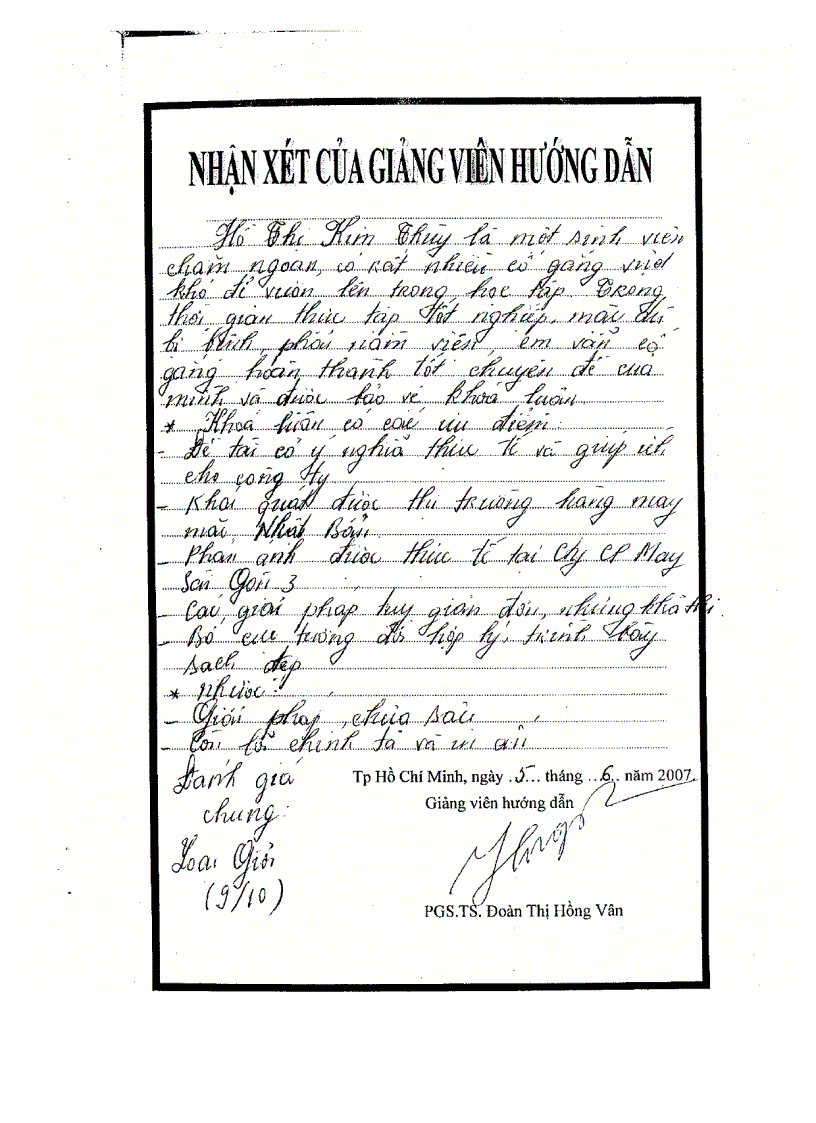 NHẬN XÉT CỦA GIẢNG VIÊN HƯỚNG DẪN
Hồ Thị Kim Thùy là một sinh viên
chăm ngoan, có rất nhiều cố gắng vượt
khó để vươn lên trong học tập. Trong
thời gian thực tập tốt nghiệp, mặc dù
bị bệnh, phải nằm viện, em vẫn cố
gắng hoàn thành tốt chuyên đề của
mình và được bảo vệ khoá luận.
* Khoá luận có các ưu điểm:
- Đề tài có ý nghĩa thực tế và giúp ích
cho công ty
- Khái quát được thị trường hàng may
mặc Nhật Bản.
- Phản ánh được thực tế tại Cty CP May
Sài Gòn 3
- Các giải pháp tuy giản đơn, nhưng khả thi.
- Bố cục tương đối hợp lý, trình bày
sạch đẹp
* Nhược:
- Giải pháp chưa sâu
- Còn lỗi chính tả và in ấn
Đánh giá
chung:
Loại Giỏi
(9/10)
Tp Hồ Chí Minh, ngày ..5... tháng ..6.. năm 2007.
Giảng viên hướng dẫn
PGS.TS. Đoàn Thị Hồng Vân